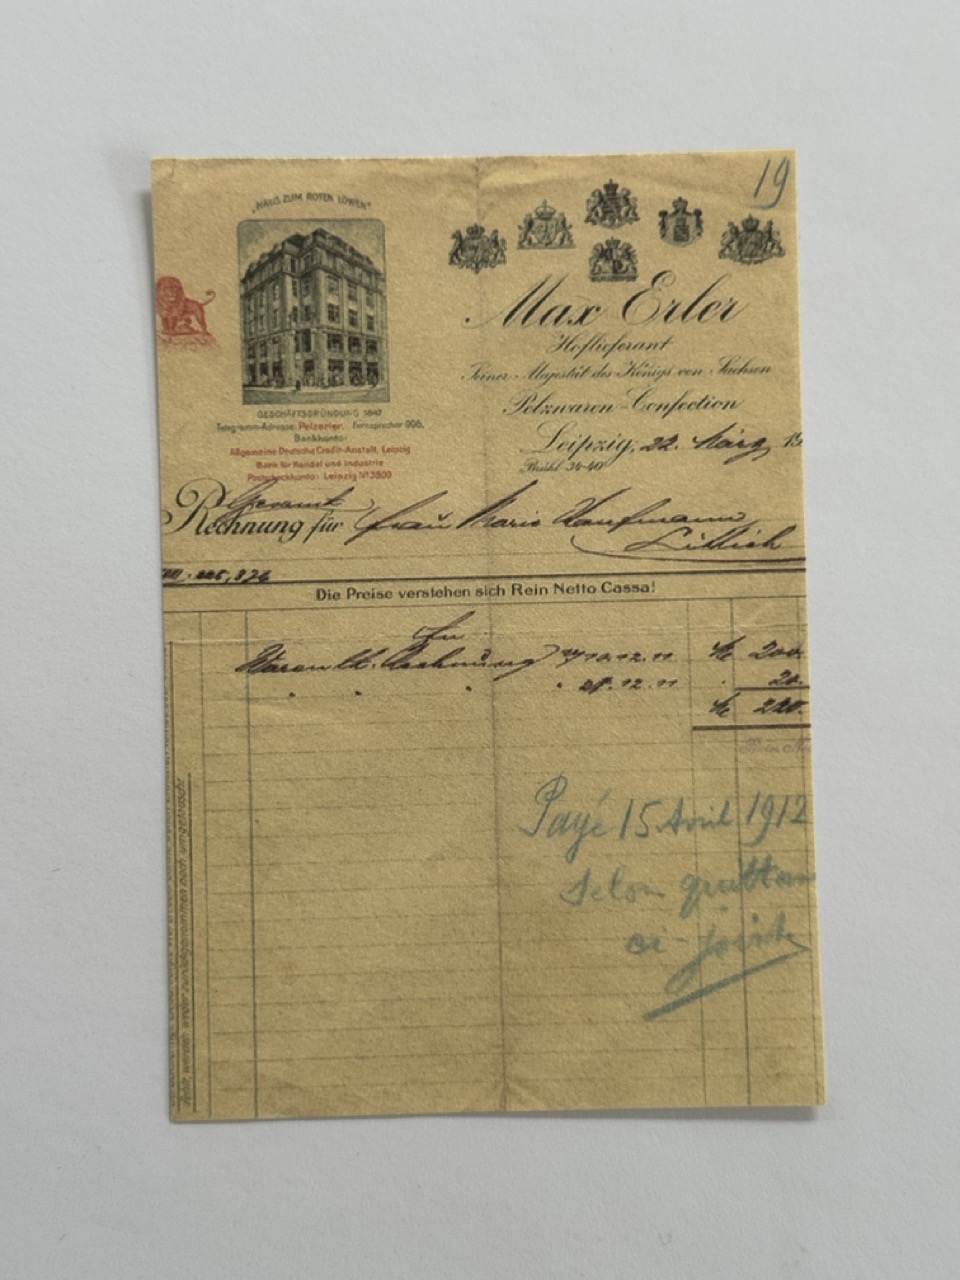 19
"HAUS ZUM ROTEN LÖWEN"
GESCHÄFTSGRÜNDUNG 1847
Telegramm-Adresse: Pelzerler. Fernsprecher 996.
Bankkonto:
Allgemeine Deutsche Credit-Anstalt, Leipzig
Bank für Handel und Industrie
Postscheckkonto: Leipzig Nº 3800
Max Erler
Hoflieferant
Seiner Majestät des Königs von Sachsen
Pelzwaren-Confection
Leipzig, 22. März 19
Brühl 34-40
Gesamt
Rechnung für Frau Marie Kaufmann
Lüttich
Die Preise verstehen sich Rein Netto Cassa!
Rechnung 10.12.11 200.
28.12.11 20.
220.
Payé 15 Avril 1912
selon
ci-jointe
werden weder zurückgenommen noch umgetauscht